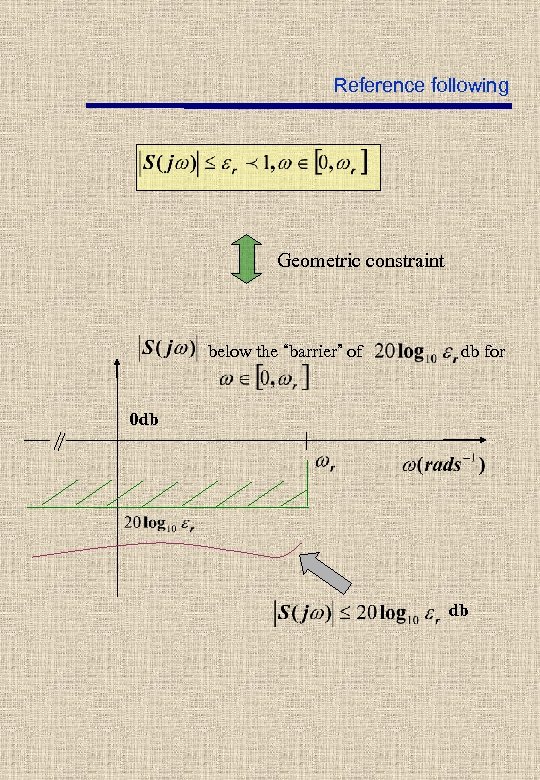 Reference following
|S(jω)| ≤ ε_r ≺ 1, ω ∈ [0, ω_r]
Geometric constraint
|S(jω)| below the “barrier” of 20 log₁₀ ε_r db for
ω ∈ [0, ω_r]
0db
ω_r
ω(rads⁻¹)
20 log₁₀ ε_r
|S(jω)| ≤ 20 log₁₀ ε_r db